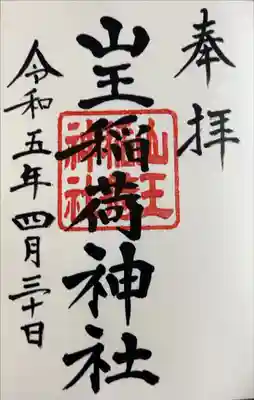 奉拝
山王稲荷神社
山王
神社
令和五年四月三十日